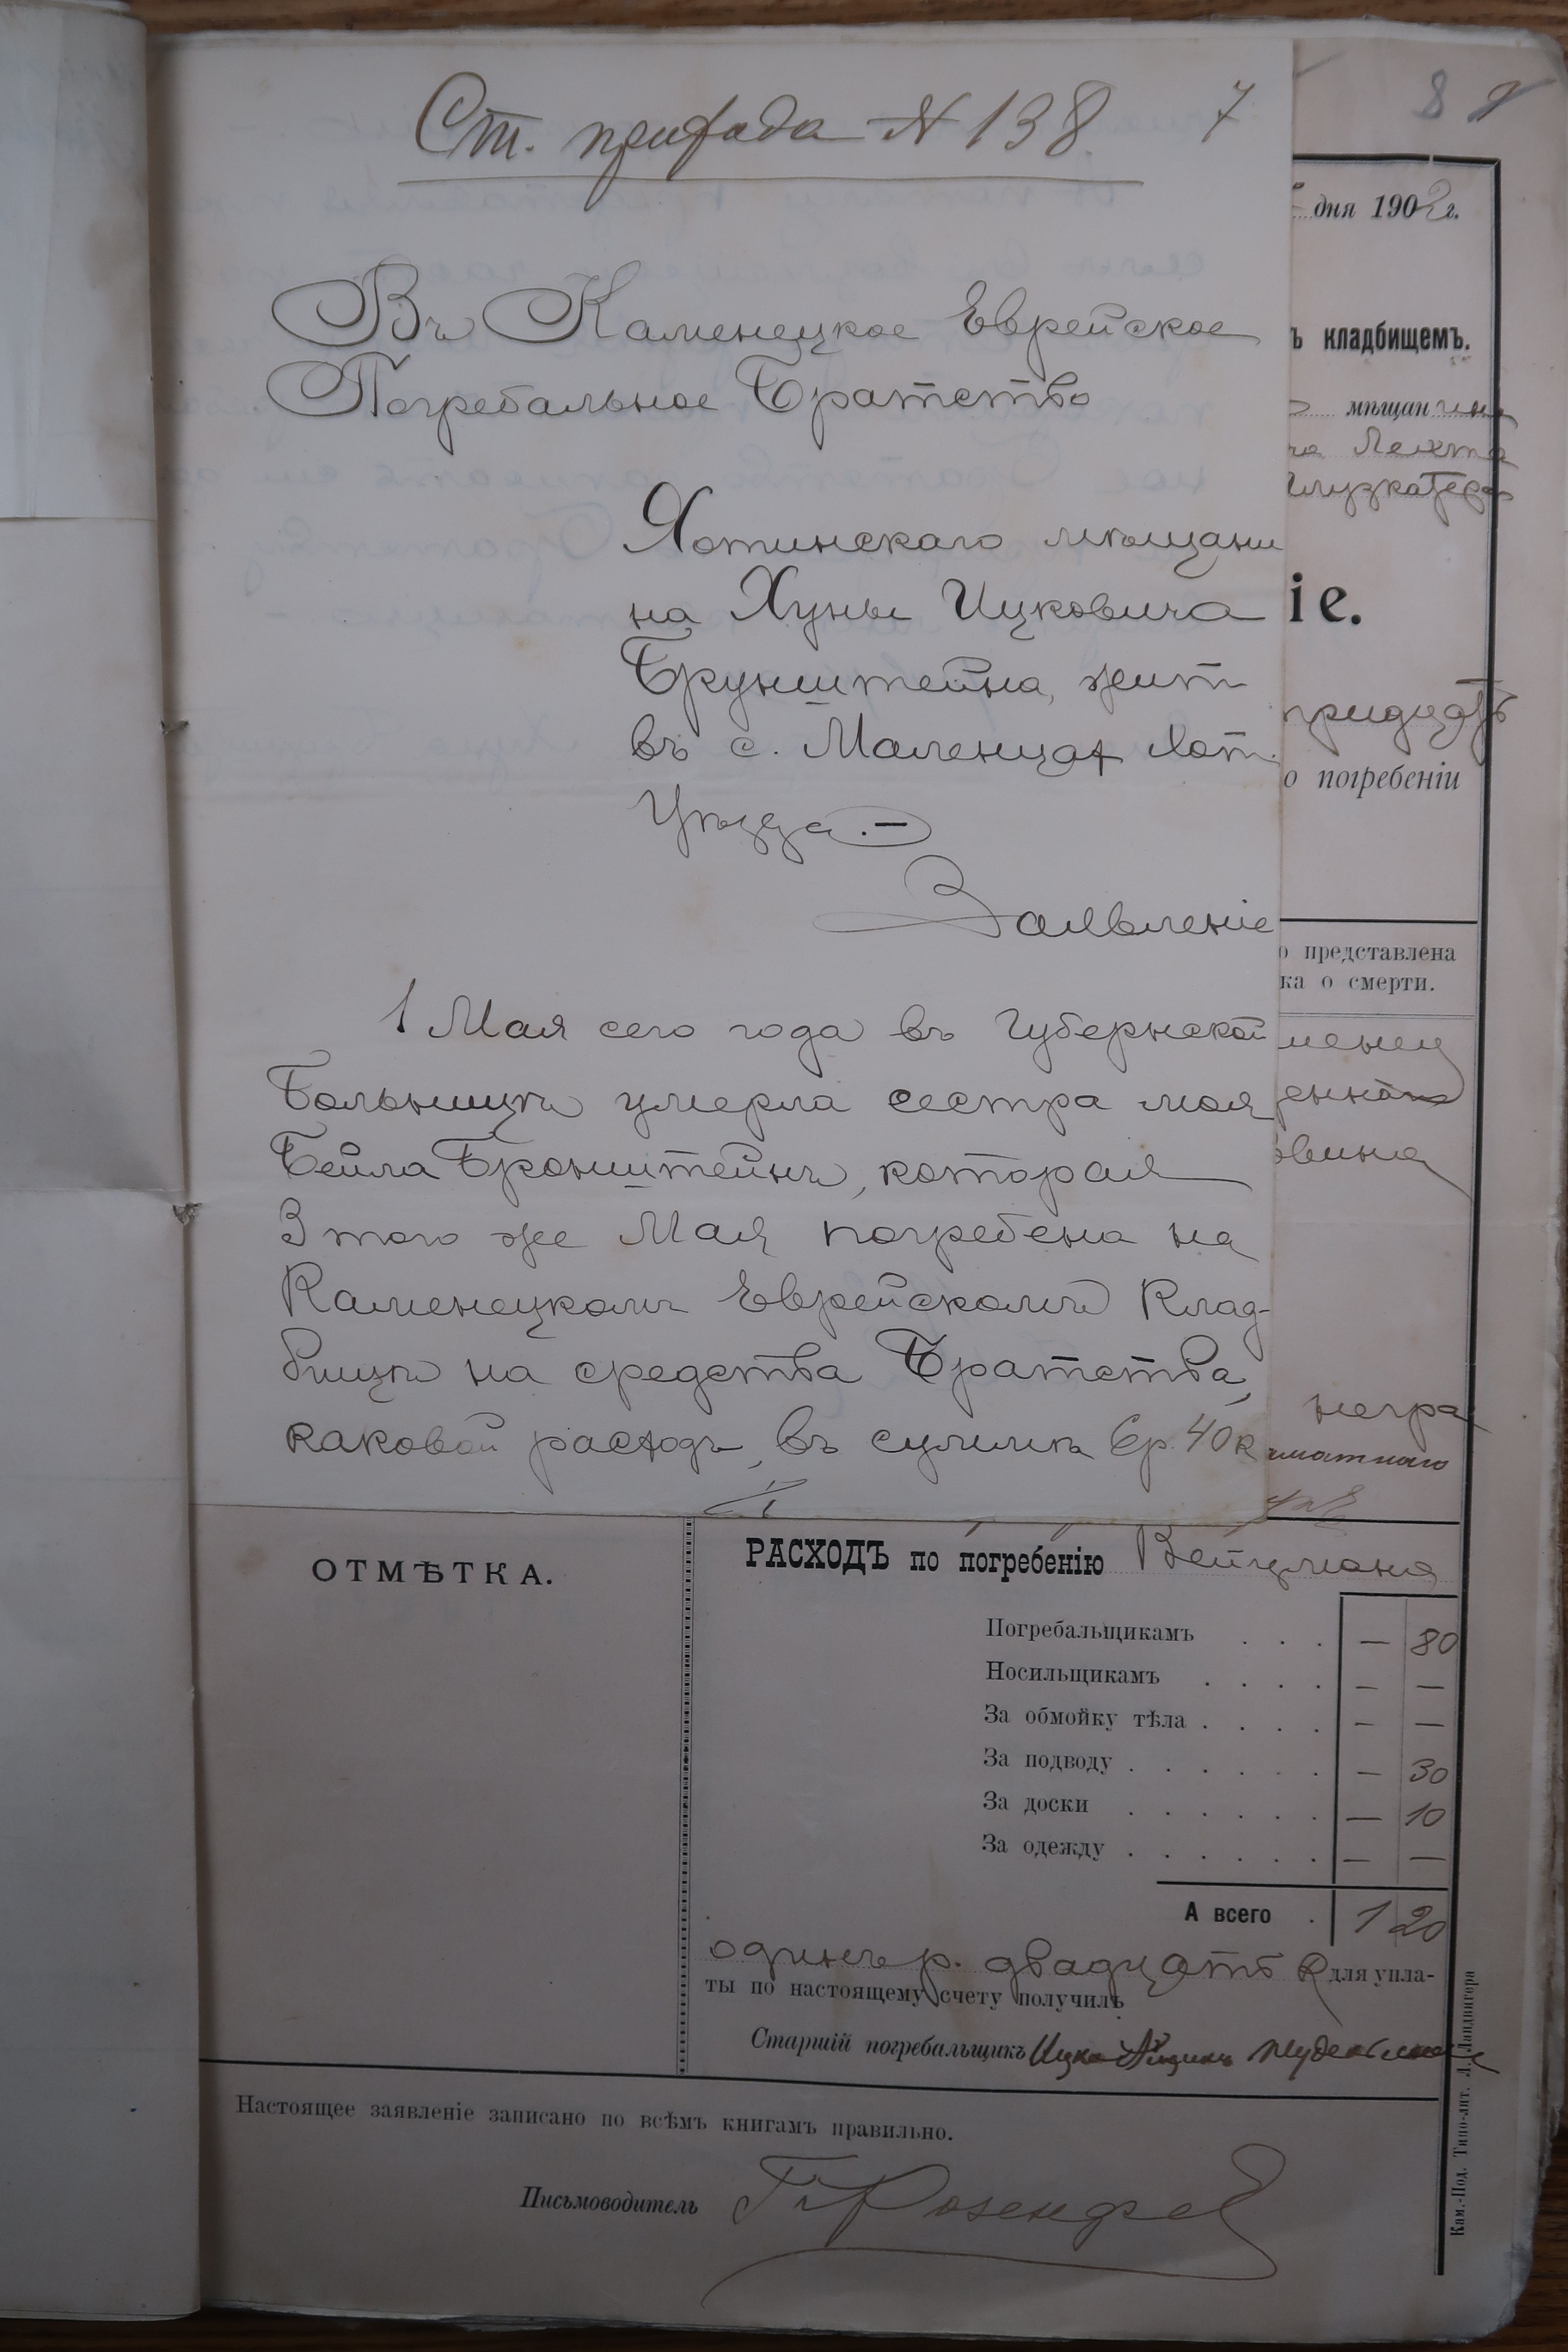 Ст. прихода № 138. 7
Въ Каменецкое Еврейское
Погребальное Братство
Хотинскаго мѣщани
на Хуны Ицковича
Брунштейна, жит
въ с. Маленцах Хот.
Уѣзда.—
Заявленіе
1 Мая сего года въ Губернской
Больницѣ умерла сестра моя
Бейла Бронштейнъ, которая
3 того же Мая погребена на
Каменецкомъ Еврейскомъ Клад-
бищѣ на средства Братства,
каковой расходъ, въ суммѣ 6р. 40к
8
дня 1902г.
ъ кладбищемъ.
мѣщанина
іе.
тридцать
о погребеніи
о представлена
ка о смерти.
менец
енной
овина
негра
матнаго
ОТМѢТКА.
РАСХОДЪ по погребенію Вейцмана
Погребальщикамъ . . . — 80
Носильщикамъ . . . . — —
За обмойку тѣла . . . . — —
За подводу . . . . . . — 30
За доски . . . . . . — 10
За одежду . . . . . . — —
А всего . 1 20
одинъ р. двадцать к для упла-
ты по настоящему счету получилъ
Старшій погребальщикъ Ицко
Настоящее заявленіе записано по всѣмъ книгамъ правильно.
Письмоводитель Розенфе
Кам.-Под. Типо-лит. Л. Ландвигера